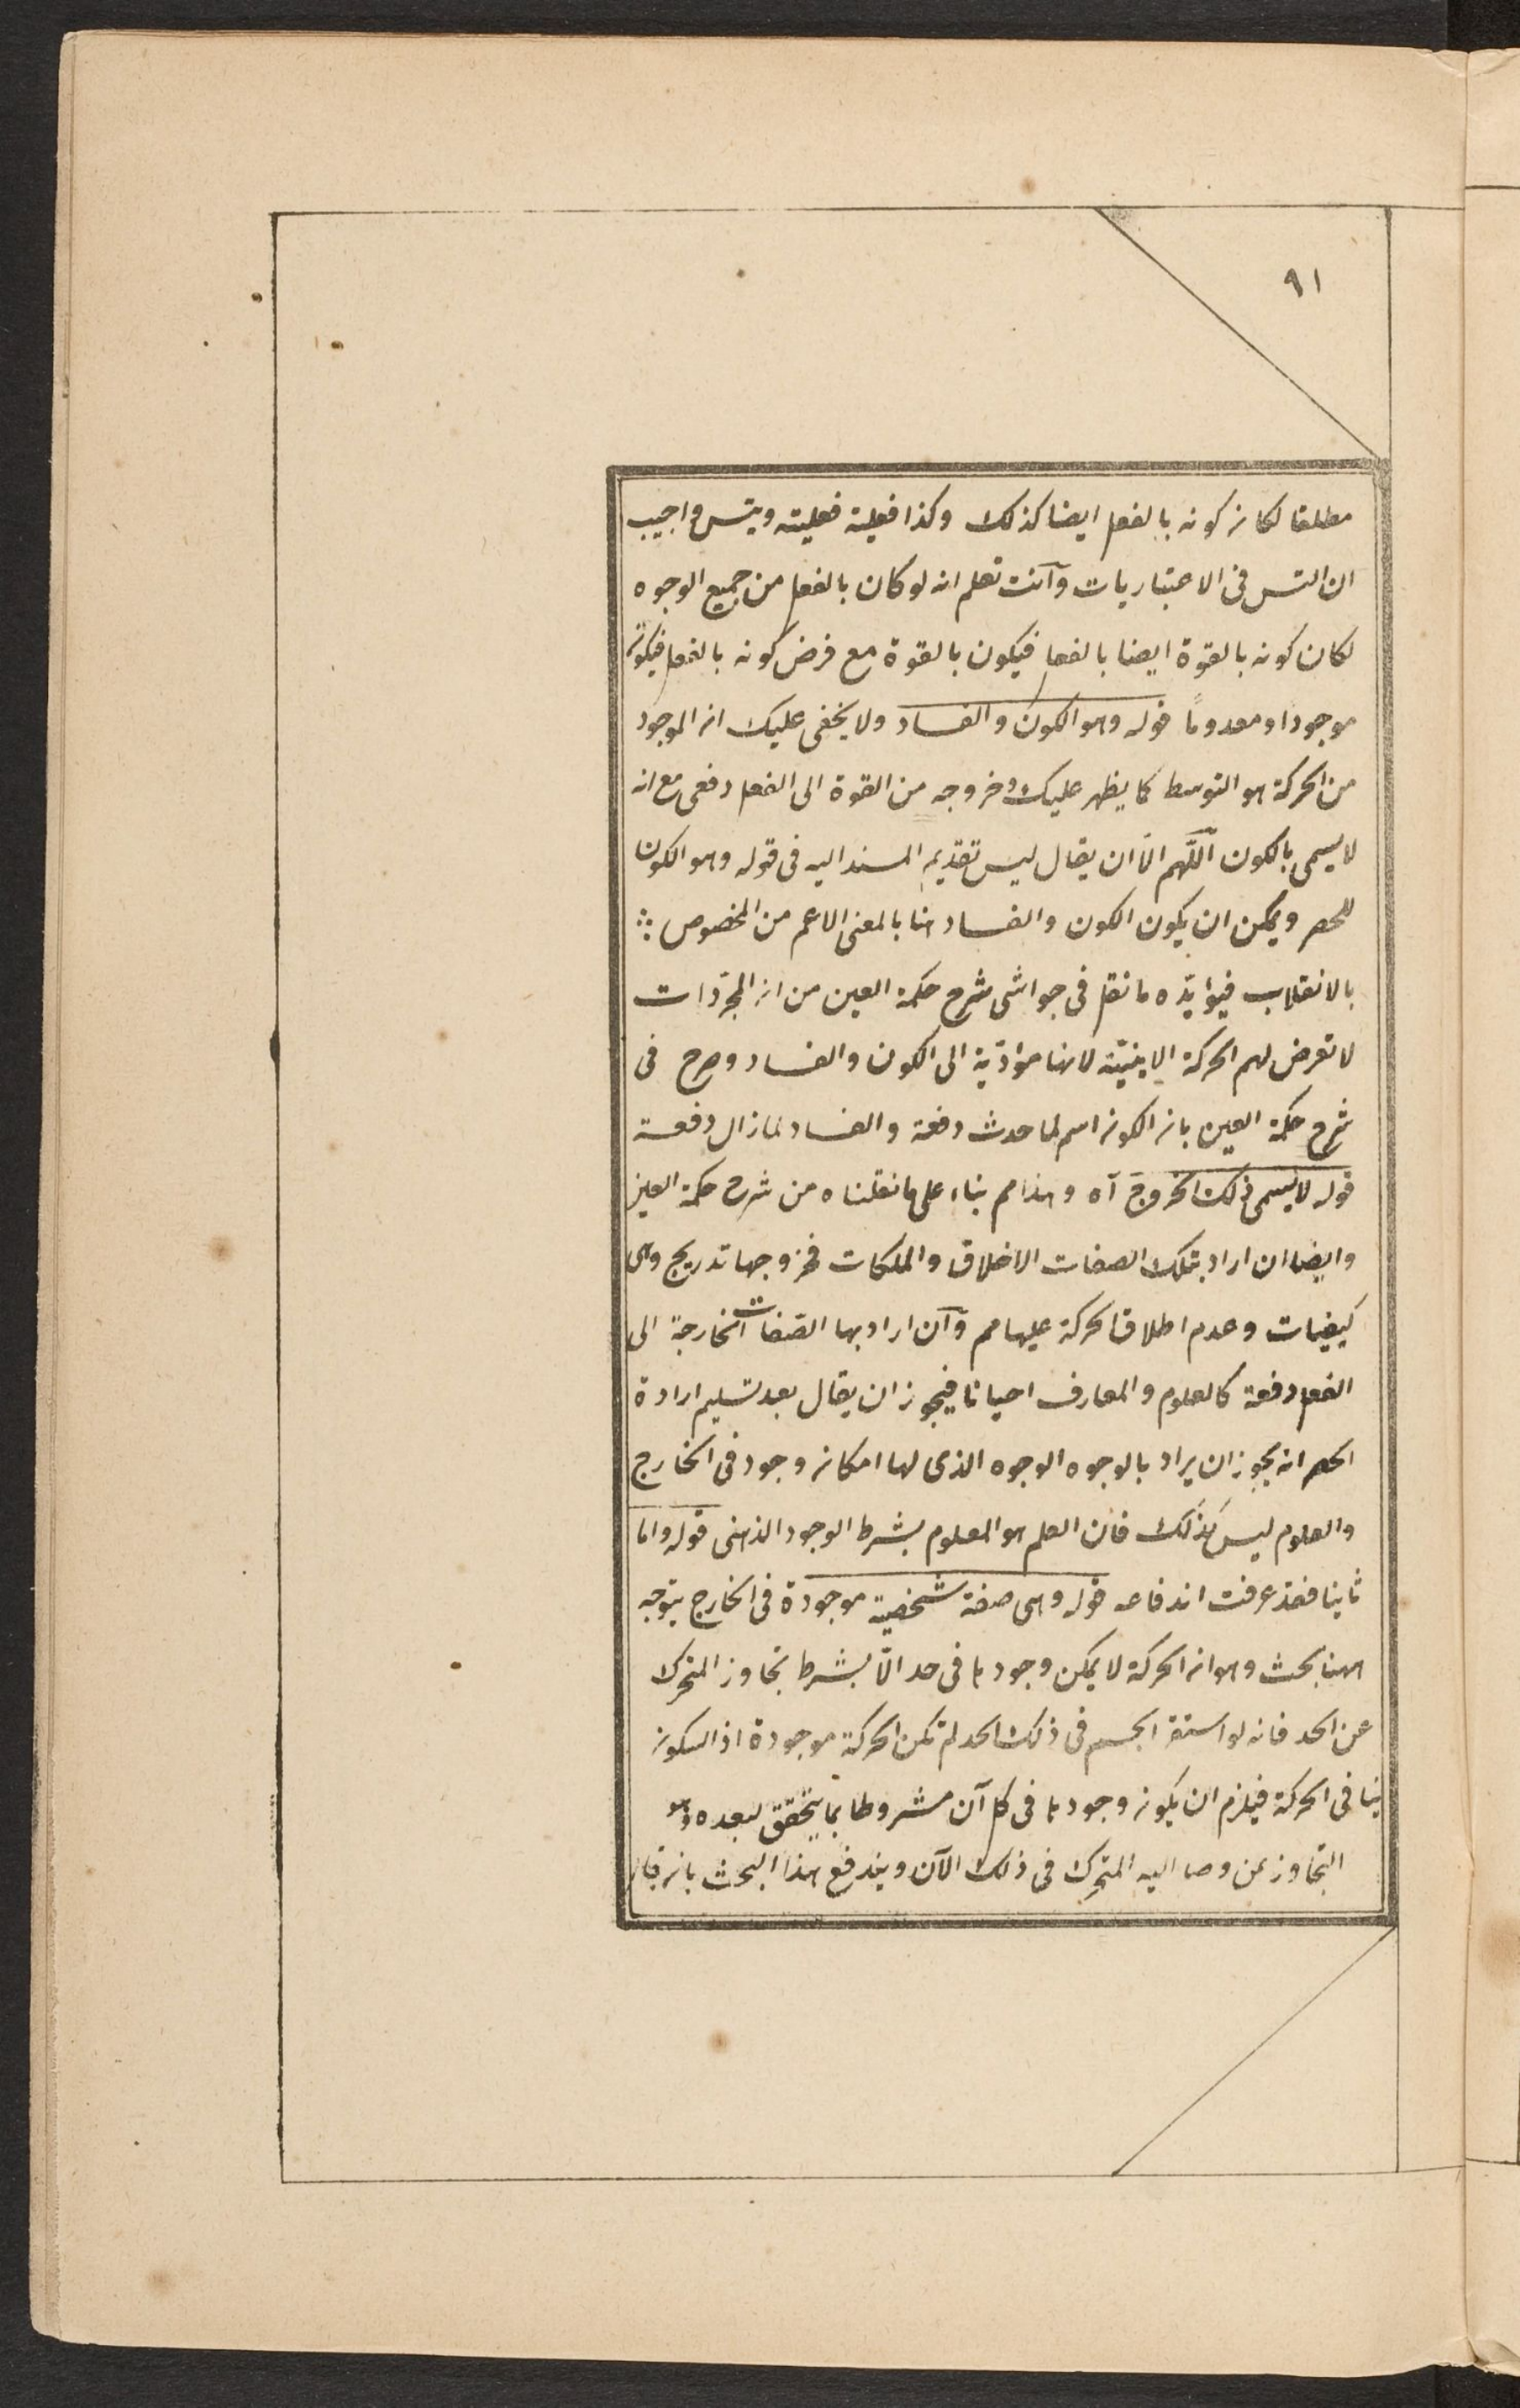 ٩١
مطلقا لكان كونه بالفعل ايضا كذلك وكذا فعلية فعليته ويتس واجيب
ان التس فى الاعتباريات وآنت تعلم انه لو كان بالفعل من جميع الوجوه
لكان كونه بالقوة ايضا بالفعل فيكون بالقوة مع فرض كونه بالفعل فيكون
موجودا ومعدومًا قوله وهو الكون والفساد ولا يخفى عليك ان الموجود
من الحركة هو التوسط كما يظهر عليك وخروجه من القوة الى الفعل دفعى مع انه
لا يسمى بالكون اللّهم الّا ان يقال ليس تقديم المسند اليه فى قوله وهو الكون
للحصر ويمكن ان يكون الكون والفساد هنا بالمعنى الاعم من المخصوص
بالانقلاب فيؤيّده ما نقل فى حواشى شرح حكمة العين من ان المجرّدات
لا تعرض لهم الحركة الاينيّة لانها مؤدّية الى الكون والفساد وصرح فى
شرح حكمة العين بان الكون اسم لما حدث دفعة والفساد لما زال دفعة
قوله لا يسمى ذلك الخروج آه وهذا مم بناء على ما نقلناه من شرح حكمة العين
وايضا ان اراد بتلك الصفات الاخلاق والملكات فخروجها تدريج وهى
كيفيات وعدم اطلاق الحركة عليها مم وآن اراد بها الصّفات الخارجة الى
الفعل دفعة كالعلوم والمعارف احيانا فيجوز ان يقال بعد تسليم ارادة
الحصر انه يجوز ان يراد بالوجوه الوجوه الذى لها امكان وجود فى الخارج
والعلوم ليس كذلك فان العلم هو المعلوم بشرط الوجود الذهنى قوله واما
ثانيا فقد عرفت اندفاعه قوله وهى صفة شخصية موجودة فى الخارج يتوجه
ههنا بحث وهو ان الحركة لا يمكن وجودها فى حد الّا بشرط تجاوز المتحرك
عن الحد فانه لو استقر الجسم فى ذلك الحد لم تكن الحركة موجودة اذ السكون
ينافى الحركة فيلزم ان يكون وجودها فى كل آن مشروطا بما يتحقق بعده وهو
التجاوز عن وصل اليه المتحرك فى ذلك الآن ويندفع هذا البحث بان